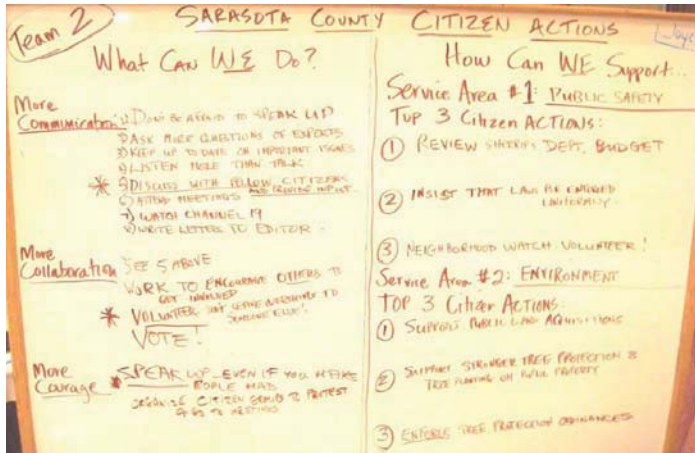 Team 2
SARASOTA COUNTY CITIZEN ACTIONS
What Can WE Do?
More
Communication
1) DON'T BE AFRAID TO SPEAK UP
2) ASK MORE QUESTIONS OF EXPERTS
3) KEEP UP TO DATE ON IMPORTANT ISSUES
4) LISTEN MORE THAN TALK
* 5) DISCUSS WITH FELLOW CITIZENS
AND PROVIDE INPUT
6) ATTEND MEETINGS
7) WATCH CHANNEL 19
8) WRITE LETTERS TO EDITOR.
More
Collaboration
SEE 5 ABOVE
WORK TO ENCOURAGE OTHERS TO
GET INVOLVED
* VOLUNTEER DON'T LEAVE TO
SOMEONE ELSE!
VOTE!
More
Courage
* SPEAK UP - EVEN IF YOU MAKE
PEOPLE MAD
ORGANIZE CITIZEN GROUP TO PROTEST
& GO TO MEETINGS
How Can WE Support...
Service Area #1: PUBLIC SAFETY
TOP 3 Citizen ACTIONS:
① REVIEW SHERIFFS DEPT. BUDGET
② INSIST THAT LAW BE ENFORCED
UNIFORMLY.
③ NEIGHBORHOOD WATCH VOLUNTEER!
Service Area #2: ENVIRONMENT
TOP 3 Citizen ACTIONS:
① SUPPORT PUBLIC LAND AQUISITIONS
② SUPPORT STRONGER TREE PROTECTION &
TREE PLANTING ON PUBLIC PROPERTY
③ ENFORCE TREE PROTECTION ORDINANCES